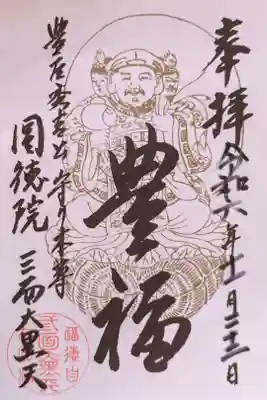 奉拝 令和六年十一月二十三日
豊福
豊臣秀吉公守り本尊
圓徳院 三面大黒天